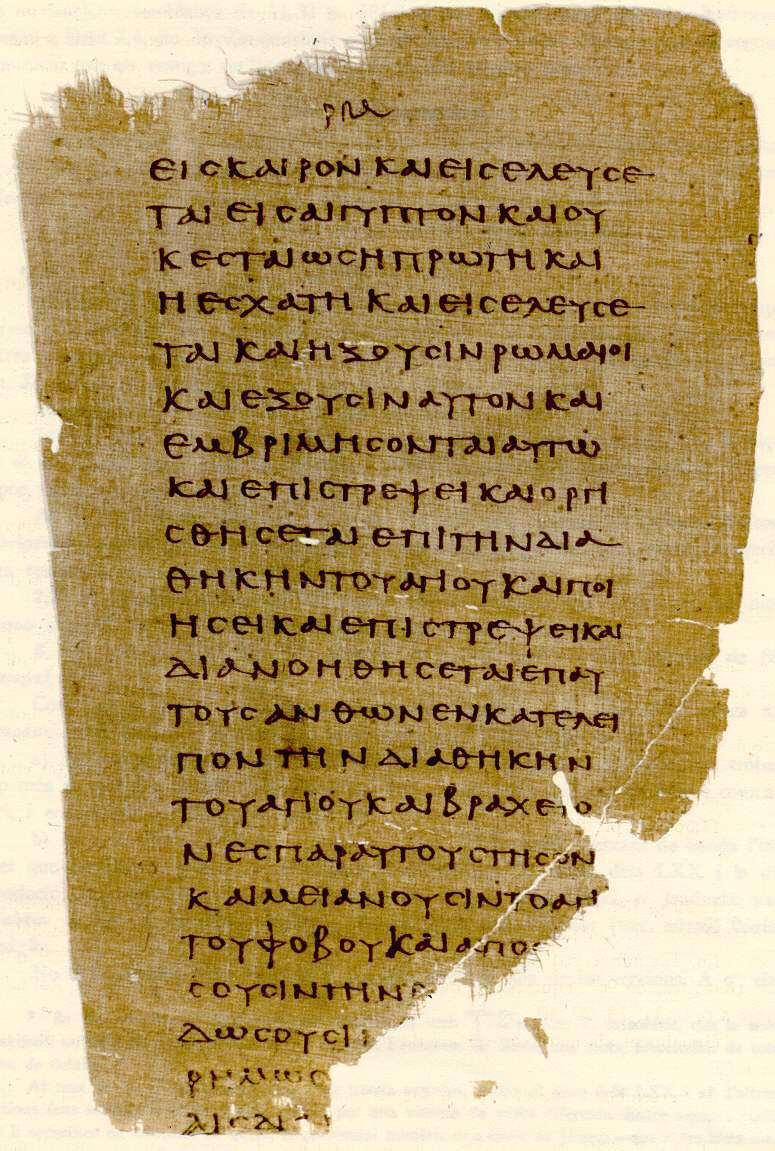 ρμα
ειϲκαιρον καιειϲελευϲε
ται ειϲαιγυπτονκαιου
κεϲταιωϲηπρωτηκαι
ηεϲχατη καιειϲελευϲε
ται καιηξουϲινρωμαιοι
καιεξουϲιναυτονκαι
εμβριμηϲονταιαυτω
καιεπιϲτρεψεικαιοργι
ϲθηϲεταιεπιτηνδια
θηκηντουαγιουκαιποι
ηϲεικαιεπιϲτρεψεικαι
διανοηθηϲεταιεπαυ
τουϲανθωνενκατελει
πον την διαθηκην
τουαγιουκαιβραχειο
νεϲπαραυτουϲτηϲον
καιμειανουϲιντοαγι
τουφοβουκαιαπος
ϲουϲιντηνθ
δωϲουϲι
ρημωϲ